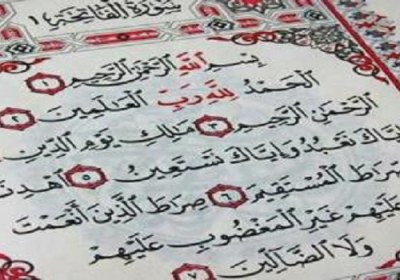 سُورَةُ الْفَاتِحَةِ
بِسْمِ اللَّهِ الرَّحْمَٰنِ الرَّحِيمِ ١
الْحَمْدُ لِلَّهِ رَبِّ الْعَالَمِينَ ٢
الرَّحْمَٰنِ الرَّحِيمِ ٣ مَالِكِ يَوْمِ الدِّينِ
إِيَّاكَ نَعْبُدُ وَإِيَّاكَ نَسْتَعِينُ ٥ اهْدِنَا
صِرَاطَ الْمُسْتَقِيمَ ٦ صِرَاطَ الَّذِينَ أَنْعَمْتَ
عَلَيْهِمْ غَيْرِ الْمَغْضُوبِ عَلَيْهِمْ
وَلَا الضَّالِّينَ ٧